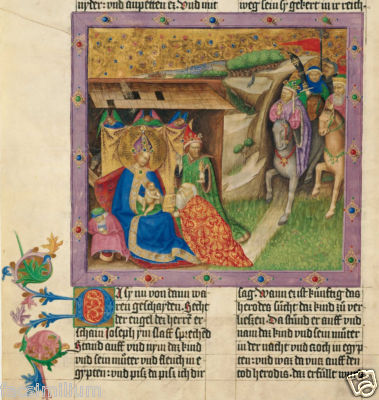 nyder · vnd anpetten ez · Vnd mit
weg sein sy gekert in ir reich ·
O sy nu von dann wa
ren geschayden · Secht
der engl des herren er
schain Joseph im slaff sprechend
Stand auff vnd nym das kind
vnd sein müter vnd fleuch in e
gypten · vnd pis da pis ich dir
sag · Wann es ist künftig das
herodes sücht das kind zü ver
liesen · Da stund er auff vnd
nam das kind vnd sein müter
in der nacht vnd zoch in egi
pten · vnd was da vns auff den
tod herodis · das erfüllt